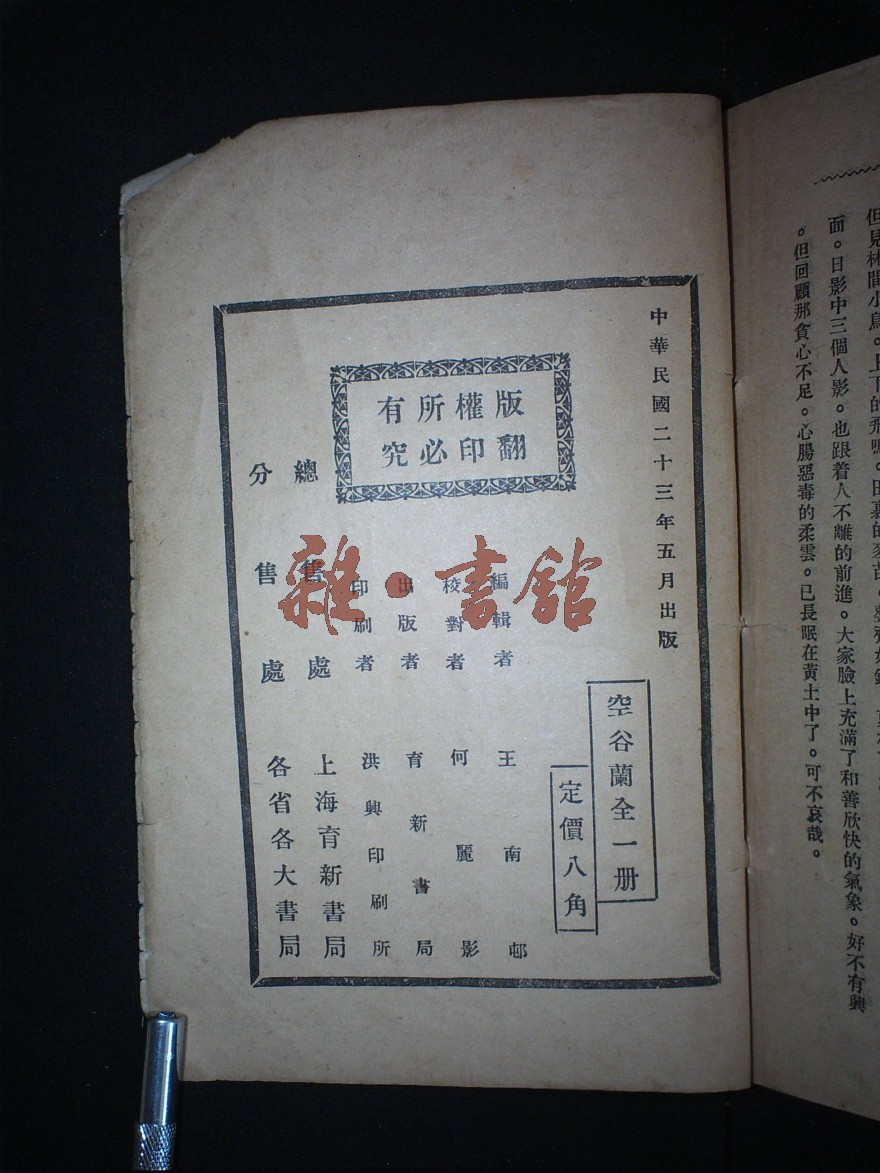 但見林間小鳥。上下的飛鳴。田裏的麥苗。
面。日影中三個人影。也跟着人不離的前進。大家臉上充滿了和善欣快的氣象。好不有興
。但回顧那貪心不足。心腸惡毒的柔雲。已長眠在黄土中了。可不哀哉。
中華民國二十三年五月出版
空谷蘭全一册
定價八角
版權所有
翻印必究
編輯者 王南邨
校對者 何麗影
出版者 育新書局
印刷者 洪興印刷所
總售處 上海育新書局
分售處 各省各大書局
雜·書館